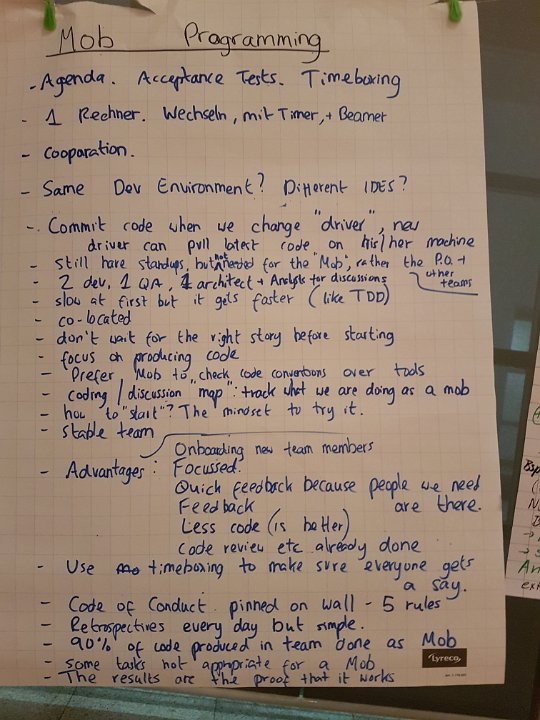 Mob Programming
- Agenda. Acceptance Tests. Timeboxing
- 1 Rechner. Wechseln, mit Timer, + Beamer
- Cooparation.
- Same Dev Environment? Different IDES?
- Commit code when we change "driver", new
driver can pull latest code on his/her machine
- still have standups, but not needed for the "Mob", rather the P.O. +
other teams
- 2 dev, 1 QA, 1 architect + Analysts for discussions
- slow at first but it gets faster (like TDD)
- co-located
- don't wait for the right story before starting
- focus on producing code
- Prefer Mob to "check code conventions over tools
- coding / discussion "map": track what we are doing as a mob
- how to "start"? The mindset to try it.
- stable team
Onboarding new team members
- Advantages: Focussed.
Quick feedback because people we need
Feedback are there.
Less code (is better)
Code review etc already done
- Use timeboxing to make sure everyone gets
a say.
- Code of Conduct pinned on wall - 5 rules
- Retrospectives every day but simple.
- 90% of code produced in team done as Mob
- some tasks not appropriate for a Mob
- The results are the proof that it works
Lyreco